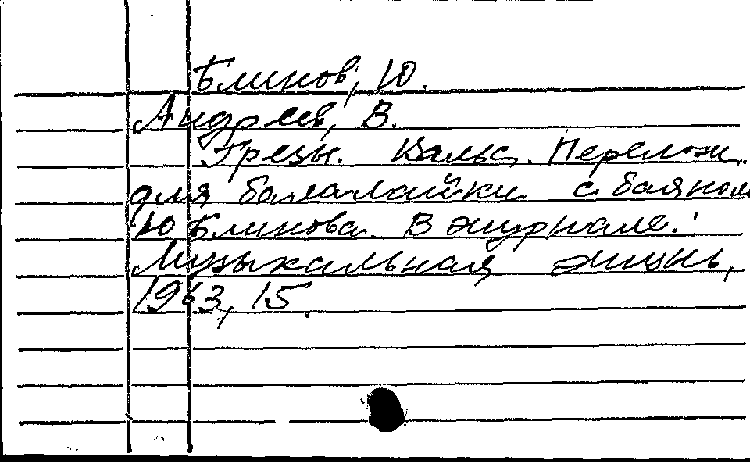 Блинов, Ю.
Андреев, В.
Грезы. Вальс. Перелож.
для балалайки с баяном
Ю Блинова. В журнале:
Музыкальная жизнь,
1963, 15.